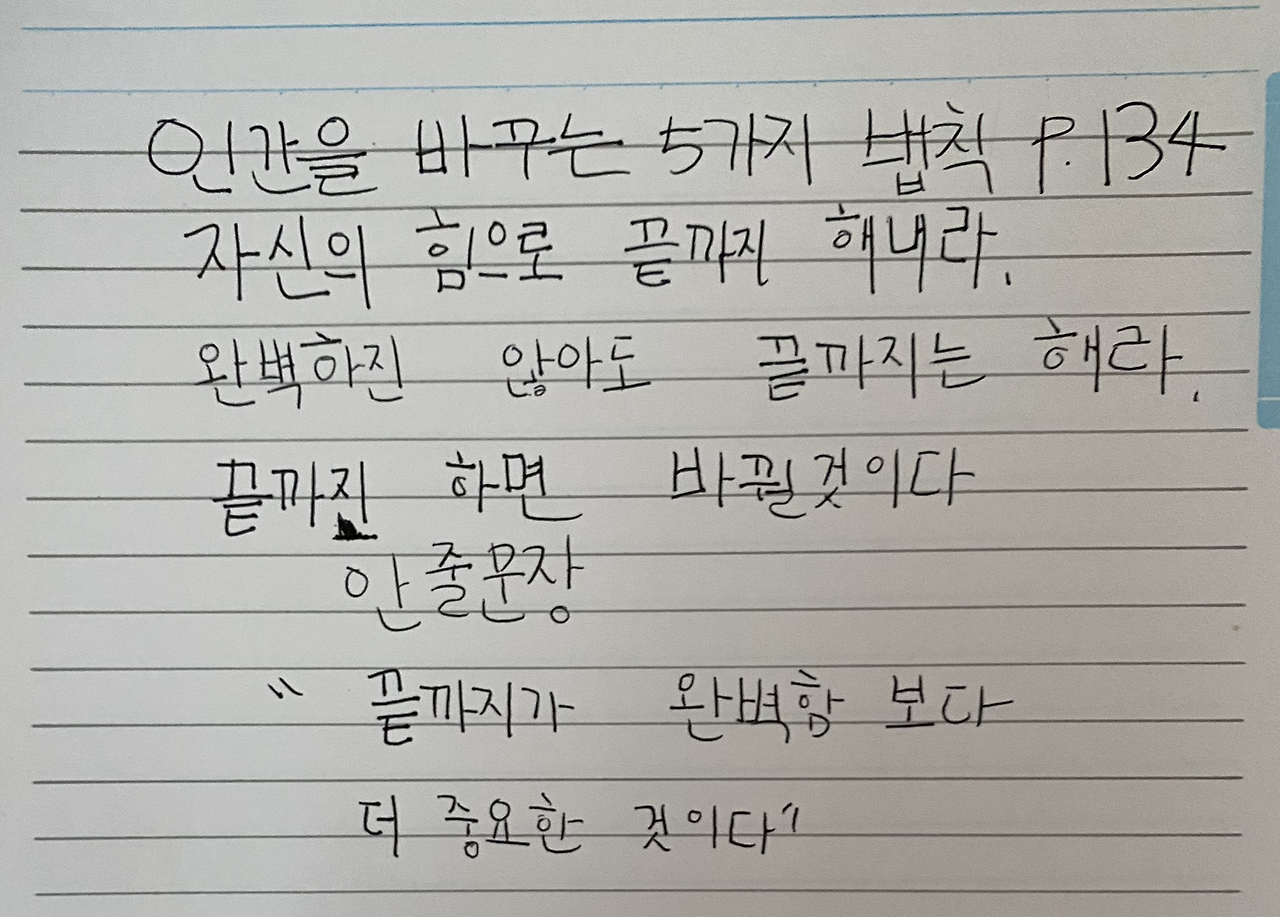 인간을 바꾸는 5가지 법칙 P.134
자신의 힘으로 끝까지 해내라.
완벽하진 않아도 끝까지는 해라.
끝까지 하면 바뀔것이다
안줄문장
" 끝까지가 완벽함 보다
더 중요한 것이다"